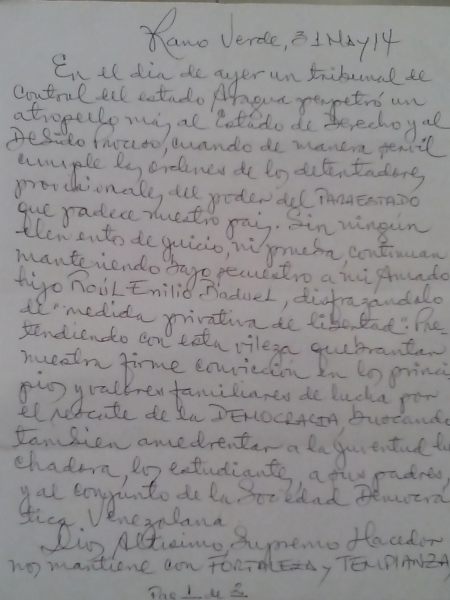 Ramo Verde, 31 May 14
En el dia de ayer un tribunal de
control del estado Aragua perpetró un
atropello más al Estado de Derecho y al
Debido Proceso, cuando de manera servil
cumple las ordenes de los detentadores
provisionales del poder del PARAESTADO
que padece nuestro pais. Sin ningún
elemento de juicio, ni prueba, continuan
manteniendo bajo secuestro a mi Amado
hijo Raúl Emilio Baduel, disfrazandolo
de "medida privativa de libertad". Pre-
tendiendo con esta vileza quebrantar
nuestra firme convicción en los princi-
pios y valores familiares de lucha por
el rescate de la DEMOCRACIA, buscando
tambien amedrentar a la juventud lu-
chadora, los estudiantes, a sus padres,
y al conjunto de la Sociedad Democra-
tica Venezolana
Dios Altisimo, Supremo Hacedor
nos mantiene con FORTALEZA y TEMPLANZA,
1 de 2